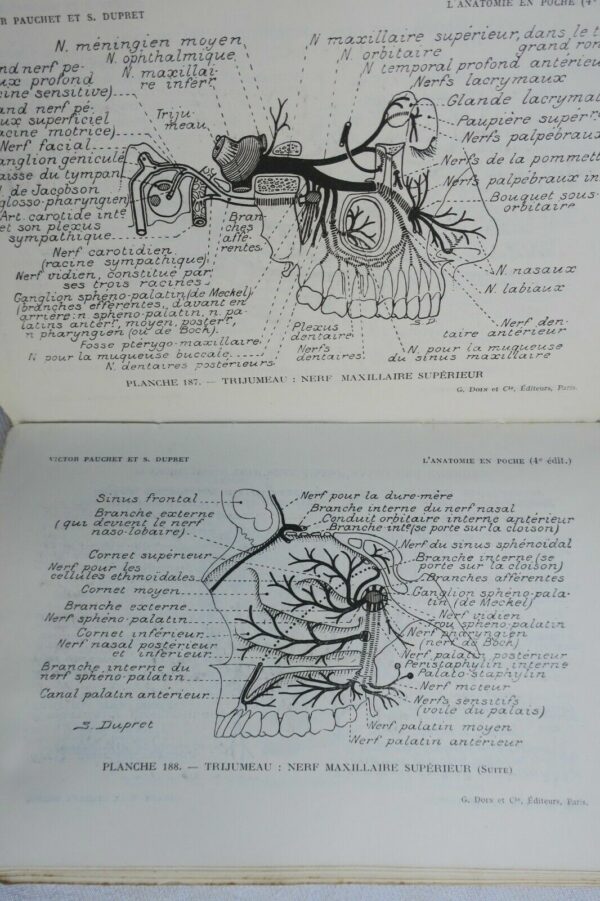 R PAUCHET ET S. DUPRET
L'ANATOMIE EN POCHE (4e
N. méningien moyen
N. ophthalmique
N. maxillai-
re inferr
Triju-
meau
nd nerf pé-
ux profond
cine sensitive)
and nerf pé-
ux superficiel
acine motrice)
Nerf facial
anglion géniculé
aisse du tympan
N. de Jacobson
glosso-pharyngien
Art. carotide inte
et son plexus
sympathique
Nerf carotidien
(racine sympathique)
Nerf vidien, constitué par
ses trois racines
Ganglion sphéno-palatin (de Meckel)
(branches efférentes, d'avant en
arrière: n sphéno-palatin, n. pa-
latins antérr, moyen, posterr,
n pharyngien (ou de Bock).
Fosse ptérygo-maxillaire
N. pour la muqueuse buccale
N. dentaires postérieurs
Bran-
ches
affé-
rentes
N maxillaire supérieur, dans le t
grand ron
N. orbitaire
N temporal profond antérieu
Nerfs lacrymaux
Glande lacrymal
Paupière superre
Nerfs palpébraux
Nerfs de la pommett
Nerfs palpébraux in
Bouquet sous-
orbitaire
N. nasaux
N. labiaux
Nerf den-
taire antérieur
N. pour la muqueuse
du sinus maxillaire
Plexus
dentaire
Nerfs
dentaires
S. D.
PLANCHE 187. — TRIJUMEAU : NERF MAXILLAIRE SUPÉRIEUR
G. Doin et Cie, Éditeurs, Paris.
VICTOR PAUCHET ET S. DUPRET
L'ANATOMIE EN POCHE (4e édit.)
Sinus frontal
Branche externe
(qui devient le nerf
naso-lobaire)
Cornet supérieur
Nerf pour les
cellules ethmoïdales
Cornet moyen
Branche externe
Nerf sphéno-palatin
Cornet inférieur
Nerf nasal postérieur
et inférieur
Branche interne du
nerf sphéno-palatin
Canal palatin antérieur
S. Dupret
Nerf pour la dure-mère
Branche interne du nerf nasal
Conduit orbitaire interne antérieur
Branche inte(se porte sur la cloison)
Nerf du sinus sphénoïdal
Branche interne (se
porte sur la cloison)
Branches afférentes
Ganglion sphéno-pala-
tin (de Meckel)
Nerf vidien
Trou sphéno-palatin
Nerf pharyngien
(nerf de Bock)
Nerf palatin postérieur
Péristaphylin interne
Palato-staphylin
Nerf moteur
Nerfs sensitifs
(voile du palais)
Nerf palatin moyen
Nerf palatin antérieur
PLANCHE 188. — TRIJUMEAU : NERF MAXILLAIRE SUPÉRIEUR (Suite)
G. Doin et Cie, Éditeurs, Paris.